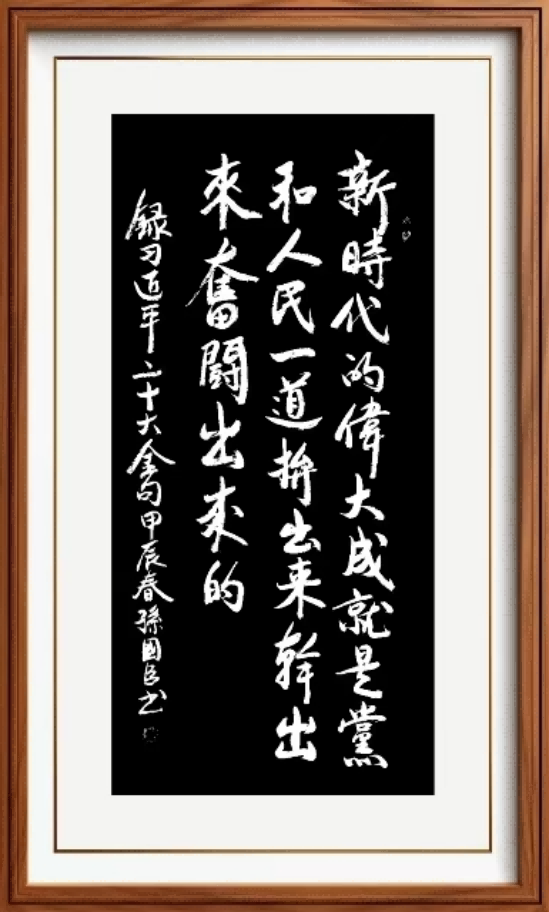 新時代的偉大成就是黨
和人民一道拚出来幹出
來奮鬪出来的
錄习近平二十大金句甲辰春孫國良书